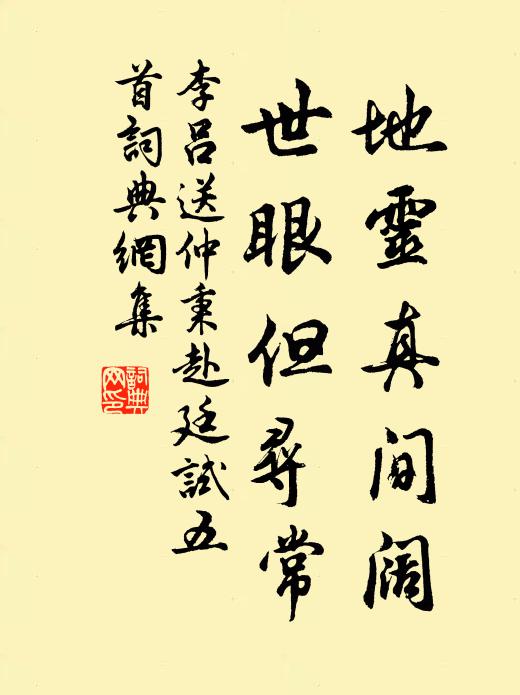 地靈真间阔
世眼但尋常
李呂送仲秉赴廷試五
首詞典網集
詞典网印